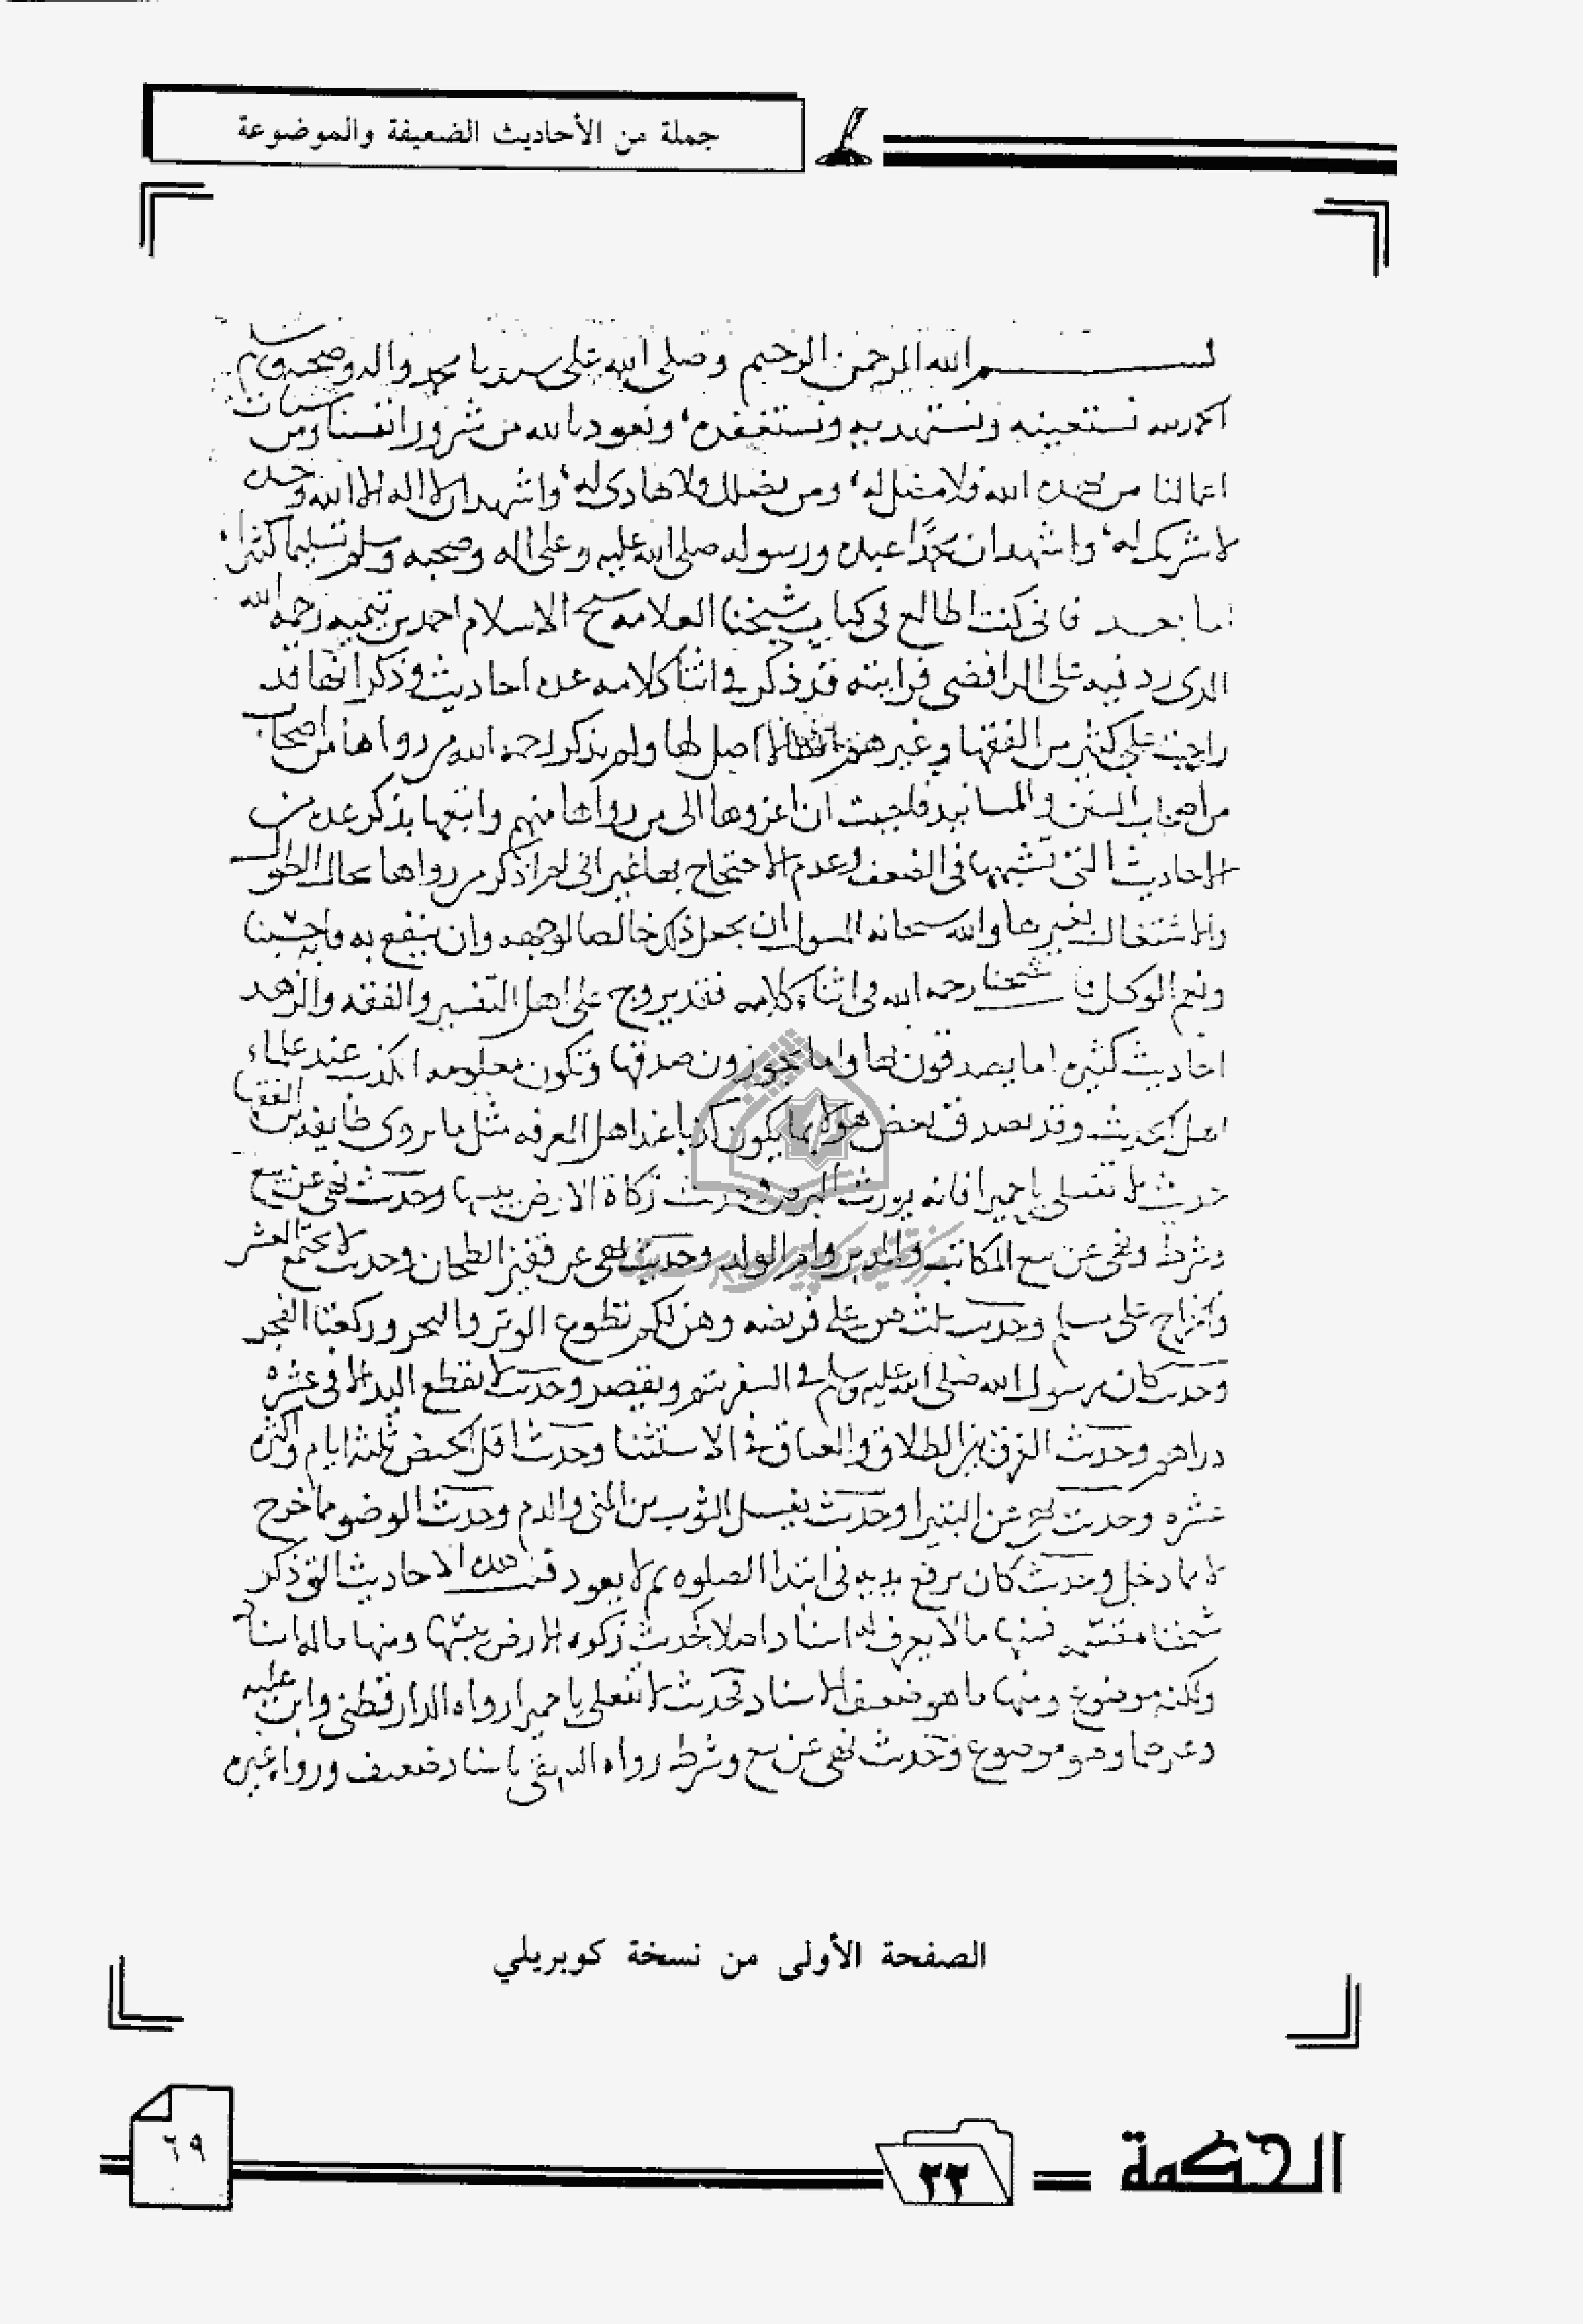 جملة من الأحاديث الضعيفة والموضوعة
بسم الله الرحمن الرحيم وصلى الله على سيدنا محمد واله وصحبه وسلم
الحمد لله نستعينه ونستهديه ونستغفره ونعوذ بالله من شرور انفسنا ومن سيات
اعمالنا من يهده الله فلا مضل له ومن يضلل فلا هادى له واشهد ان لا اله الا الله وحده
لا شريك له واشهد ان محمدا عبده ورسوله صلى الله عليه وعلى اله وصحبه وسلم تسليما كثيرا
اما بعد فانى كنت اطالع فى كتاب شيخنا العلامه شيخ الاسلام احمد بن تيميه رحمه الله
الذى رد فيه على الرافضى فرايته قد ذكر فى اثنا كلامه عده احاديث وذكر انها قد
راجت على كثير من الفقها وغيرهم وانها لا اصل لها ولم يذكر رحمه الله من رواها من اصحاب
من اصحاب السنن والمسانيد فاحببت ان اعزوها الى من رواها منهم واتبعها بذكر عده من
الاحاديث التى تشبهها فى الضعف وعدم الاحتجاج بها غير انى لم اذكر من رواها
والاشتغال بغيرها والله سبحانه المسول ان يجعل ذلك خالصا لوجهه وان ينفع به فانه حسبنا
ونعم الوكيل قال شيخنا رحمه الله فى اثناء كلامه فقد يروج على اهل التفسير والفقه والزهد
احاديث كثيره اما يصدقون بها واما يجوزون صدقها وتكون معلومه الكذب عند علماء
اهل الحديث وقد يصدق بعض هولا بما يكون كذبا عند اهل المعرفه مثل ما يروى طايفه من الفقها
حديث لا تفعلى يا حميرا فانه يورث البرص وحديث زكاة الارض يبسها وحديث نهى عن بيع
وشرط ونهى عن بيع المكاتب والمدبر وام الولد وحديث نهى عن قفيز الطحان وحديث لا يجتمع العشر
والخراج على مسلم وحديث ثلث هن على فريضه وهن لكم تطوع الوتر والنحر وركعتا الفجر
وحديث كان رسول الله صلى الله عليه وسلم فى السفر يتم ويقصر وحديث لا تقطع اليد الا فى عشره
دراهم وحديث الفرق بين الطلاق والعتاق فى الاستثنا وحديث اقل الحيض ثلثه ايام واكثره
عشره وحديث نهى عن البتيرا وحديث يغسل الثوب من المنى والدم وحديث الوضو مما خرج
لا مما دخل وحديث كان يرفع يديه فى ابتدا الصلوه ثم لا يعود قلت هذه الاحاديث التى ذكر
شيخنا منقسمه فمنها ما لا يعرف له اسناد اصلا كحديث زكوه الارض يبسها ومنها ما له اسناد
ولكنه موضوع ومنها ما هو ضعيف الاسناد فحديث لا تفعلى يا حميرا رواه الدارقطنى وابن
وغيرهما وهو موضوع وحديث نهى عن بيع وشرط رواه البيهقى باسناد ضعيف ورواه غيره
الصفحة الأولى من نسخة كوبريلي
الحكمة ٢٢ ٦٩